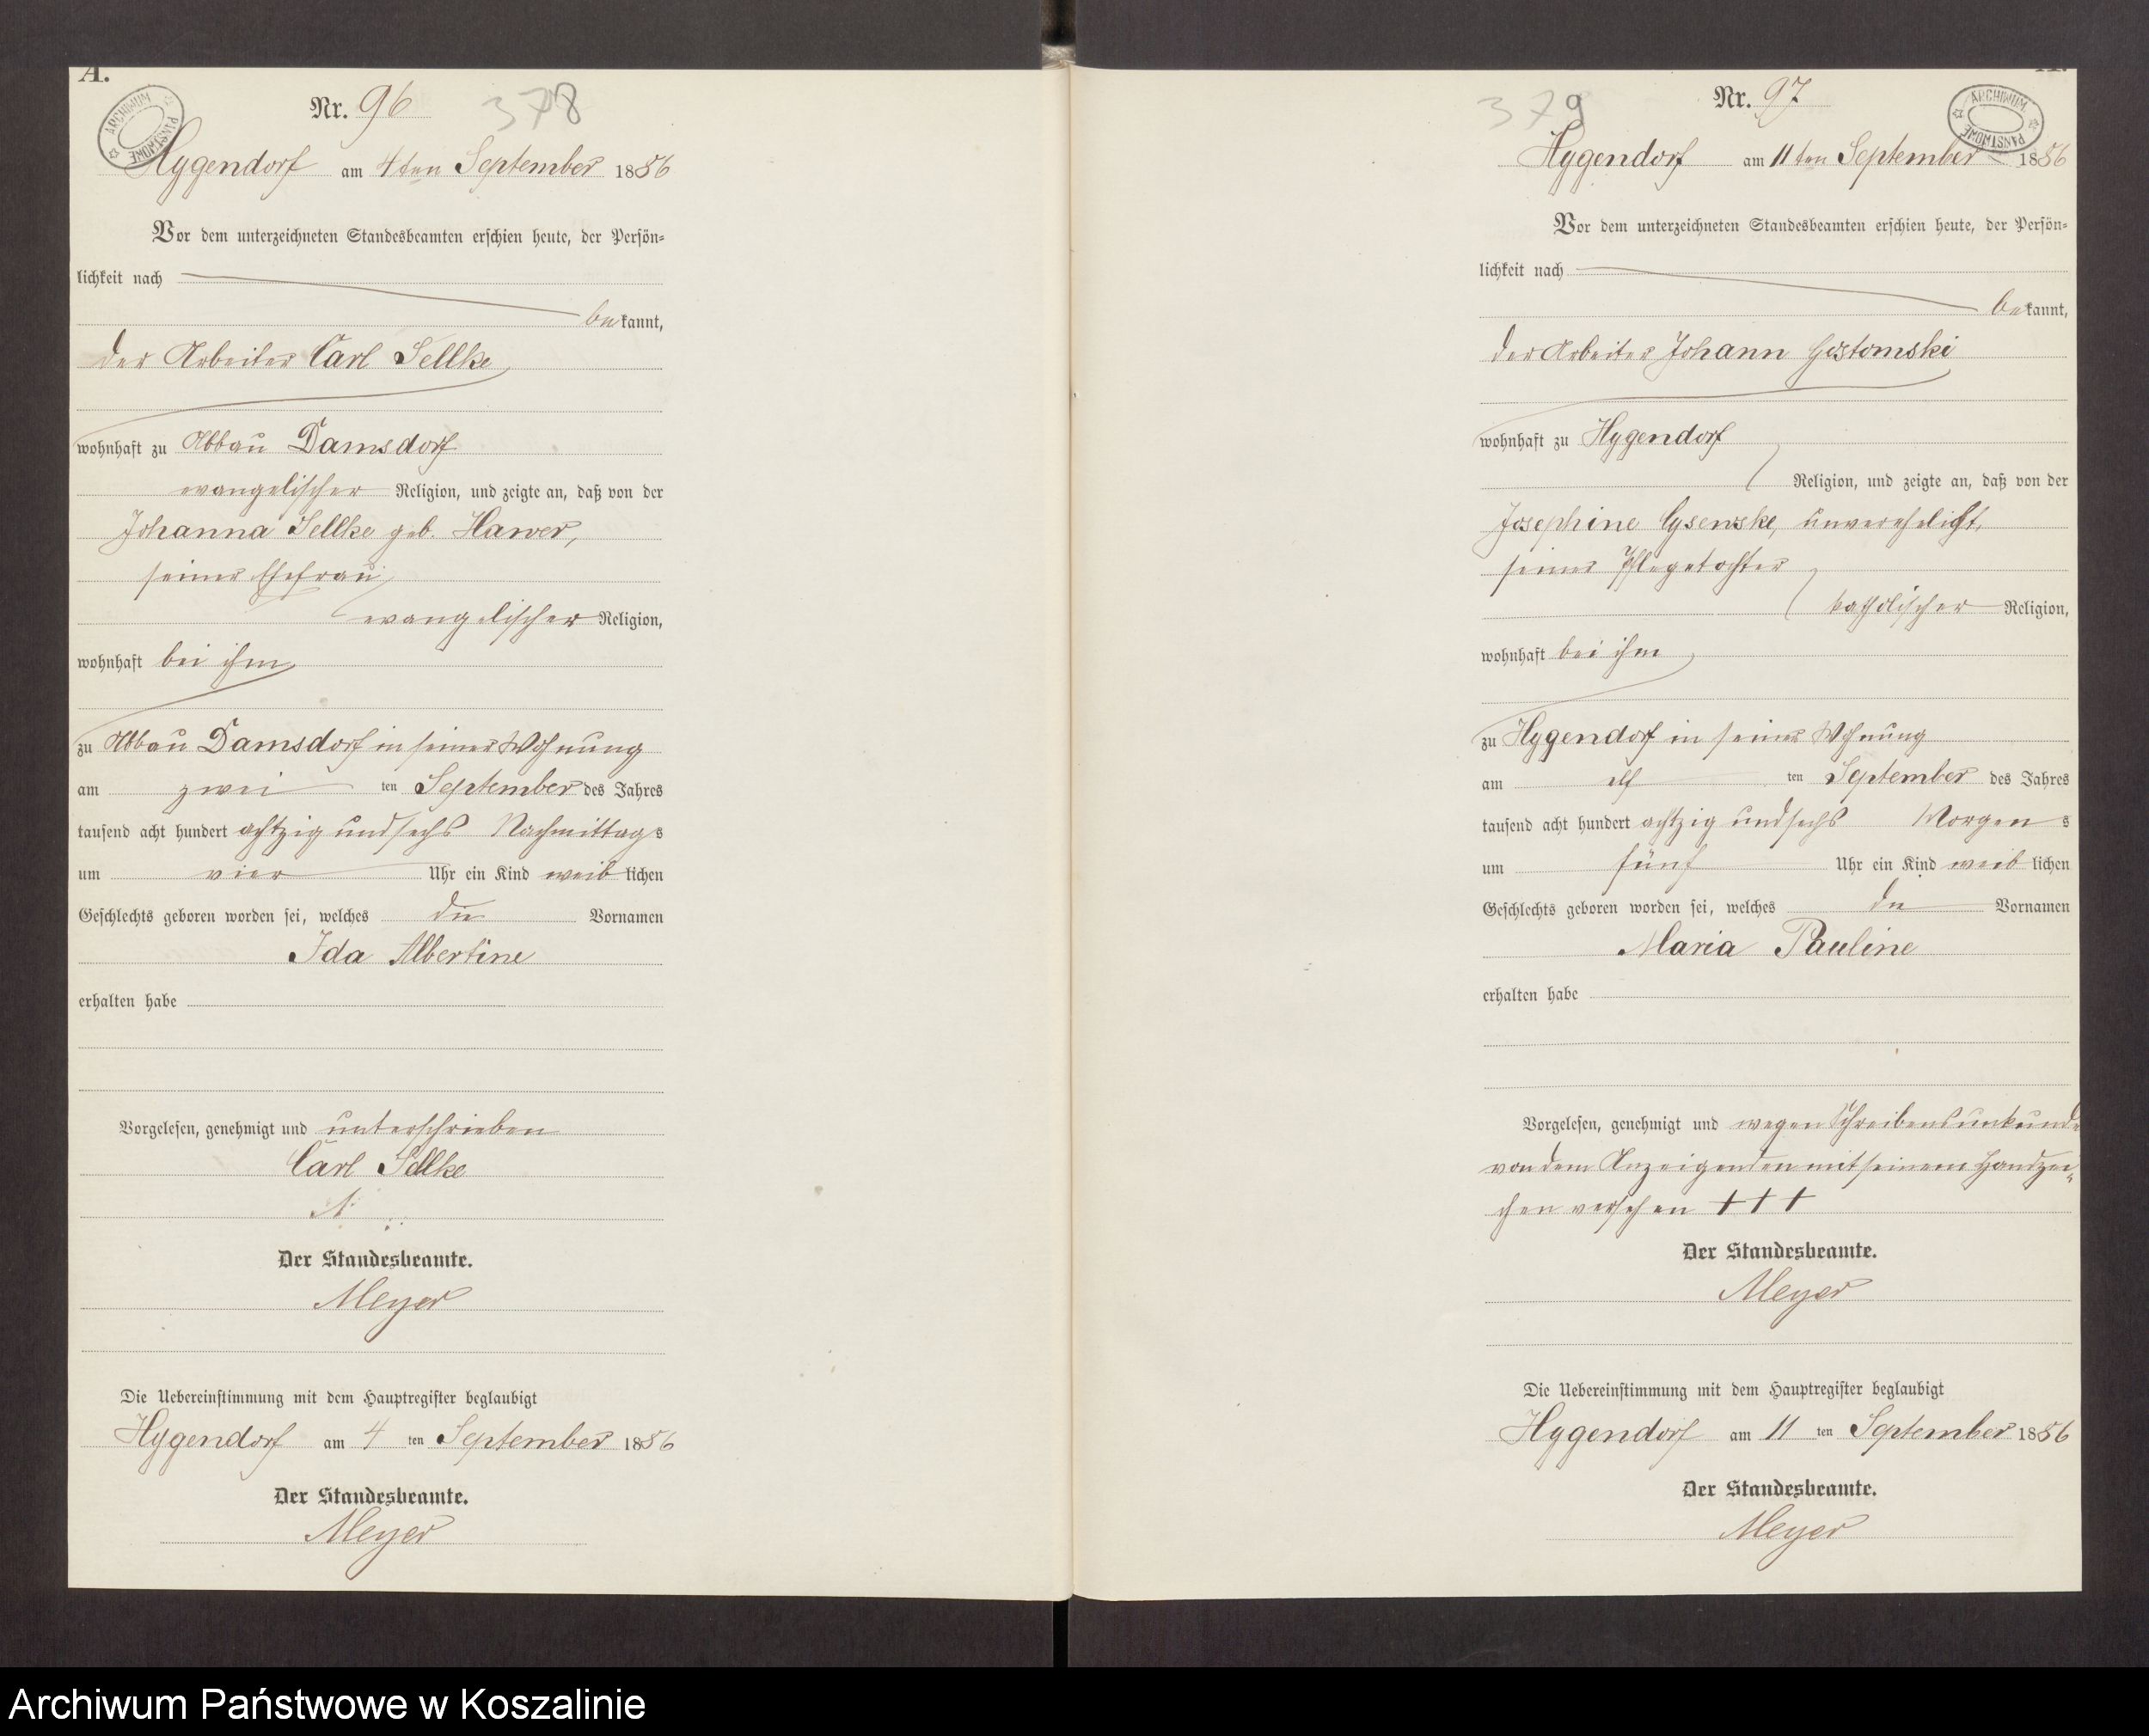 A.
ARCHIWUM PAŃSTWOWE
Nr. 96
378
Hygendorf am 4ten September 1886
Vor dem unterzeichneten Standesbeamten erschien heute, der Persön-
lichkeit nach
bekannt,
der Arbeiter Carl Sellke
wohnhaft zu Abbau Damsdorf
evangelischer Religion, und zeigte an, daß von der
Johanna Sellke geb. Hawer,
seiner Ehefrau
evangelischer Religion,
wohnhaft bei ihm
zu Abbau Damsdorf in seiner Wohnung
am zwei ten September des Jahres
tausend acht hundert achtzig und sechs Nachmittags
um vier Uhr ein Kind weiblichen
Geschlechts geboren worden sei, welches die Vornamen
Ida Albertine
erhalten habe
Vorgelesen, genehmigt und unterschrieben
Carl Sellke
Der Standesbeamte.
Meyer
Die Uebereinstimmung mit dem Hauptregister beglaubigt
Hygendorf am 4 ten September 1886
Der Standesbeamte.
Meyer
379
Nr. 97
ARCHIWUM PAŃSTWOWE
Hygendorf am 11ten September 1886
Vor dem unterzeichneten Standesbeamten erschien heute, der Persön-
lichkeit nach
bekannt,
der Arbeiter Johann Gostomski
wohnhaft zu Hygendorf
Religion, und zeigte an, daß von der
Josephine Cysenske, unverehelicht,
seiner Pflegetochter
katholischer Religion,
wohnhaft bei ihm
zu Hygendorf in seiner Wohnung
am elf ten September des Jahres
tausend acht hundert achtzig und sechs Morgens
um fünf Uhr ein Kind weiblichen
Geschlechts geboren worden sei, welches die Vornamen
Maria Pauline
erhalten habe
Vorgelesen, genehmigt und wegen Schreibensunkunde
von dem Anzeigenden mit seinem Handzei-
chen versehen + + +
Der Standesbeamte.
Meyer
Die Uebereinstimmung mit dem Hauptregister beglaubigt
Hygendorf am 11 ten September 1886
Der Standesbeamte.
Meyer
Archiwum Państwowe w Koszalinie